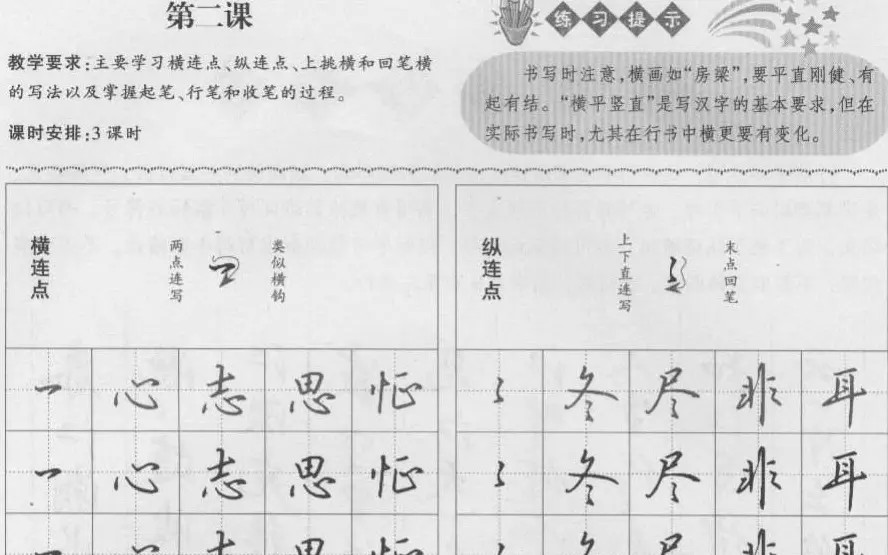 第二课
教学要求:主要学习横连点、纵连点、上挑横和回笔横
的写法以及掌握起笔、行笔和收笔的过程。
课时安排:3 课时
练习提示
书写时注意,横画如“房梁”,要平直刚健、有
起有结。“横平竖直”是写汉字的基本要求,但在
实际书写时,尤其在行书中横更要有变化。
横连点
两点连写
类似横钩
心 志 思 怔
心 志 思 怔
纵连点
上下直连写
末点回笔
冬 尽 非 耳
冬 尽 非 耳